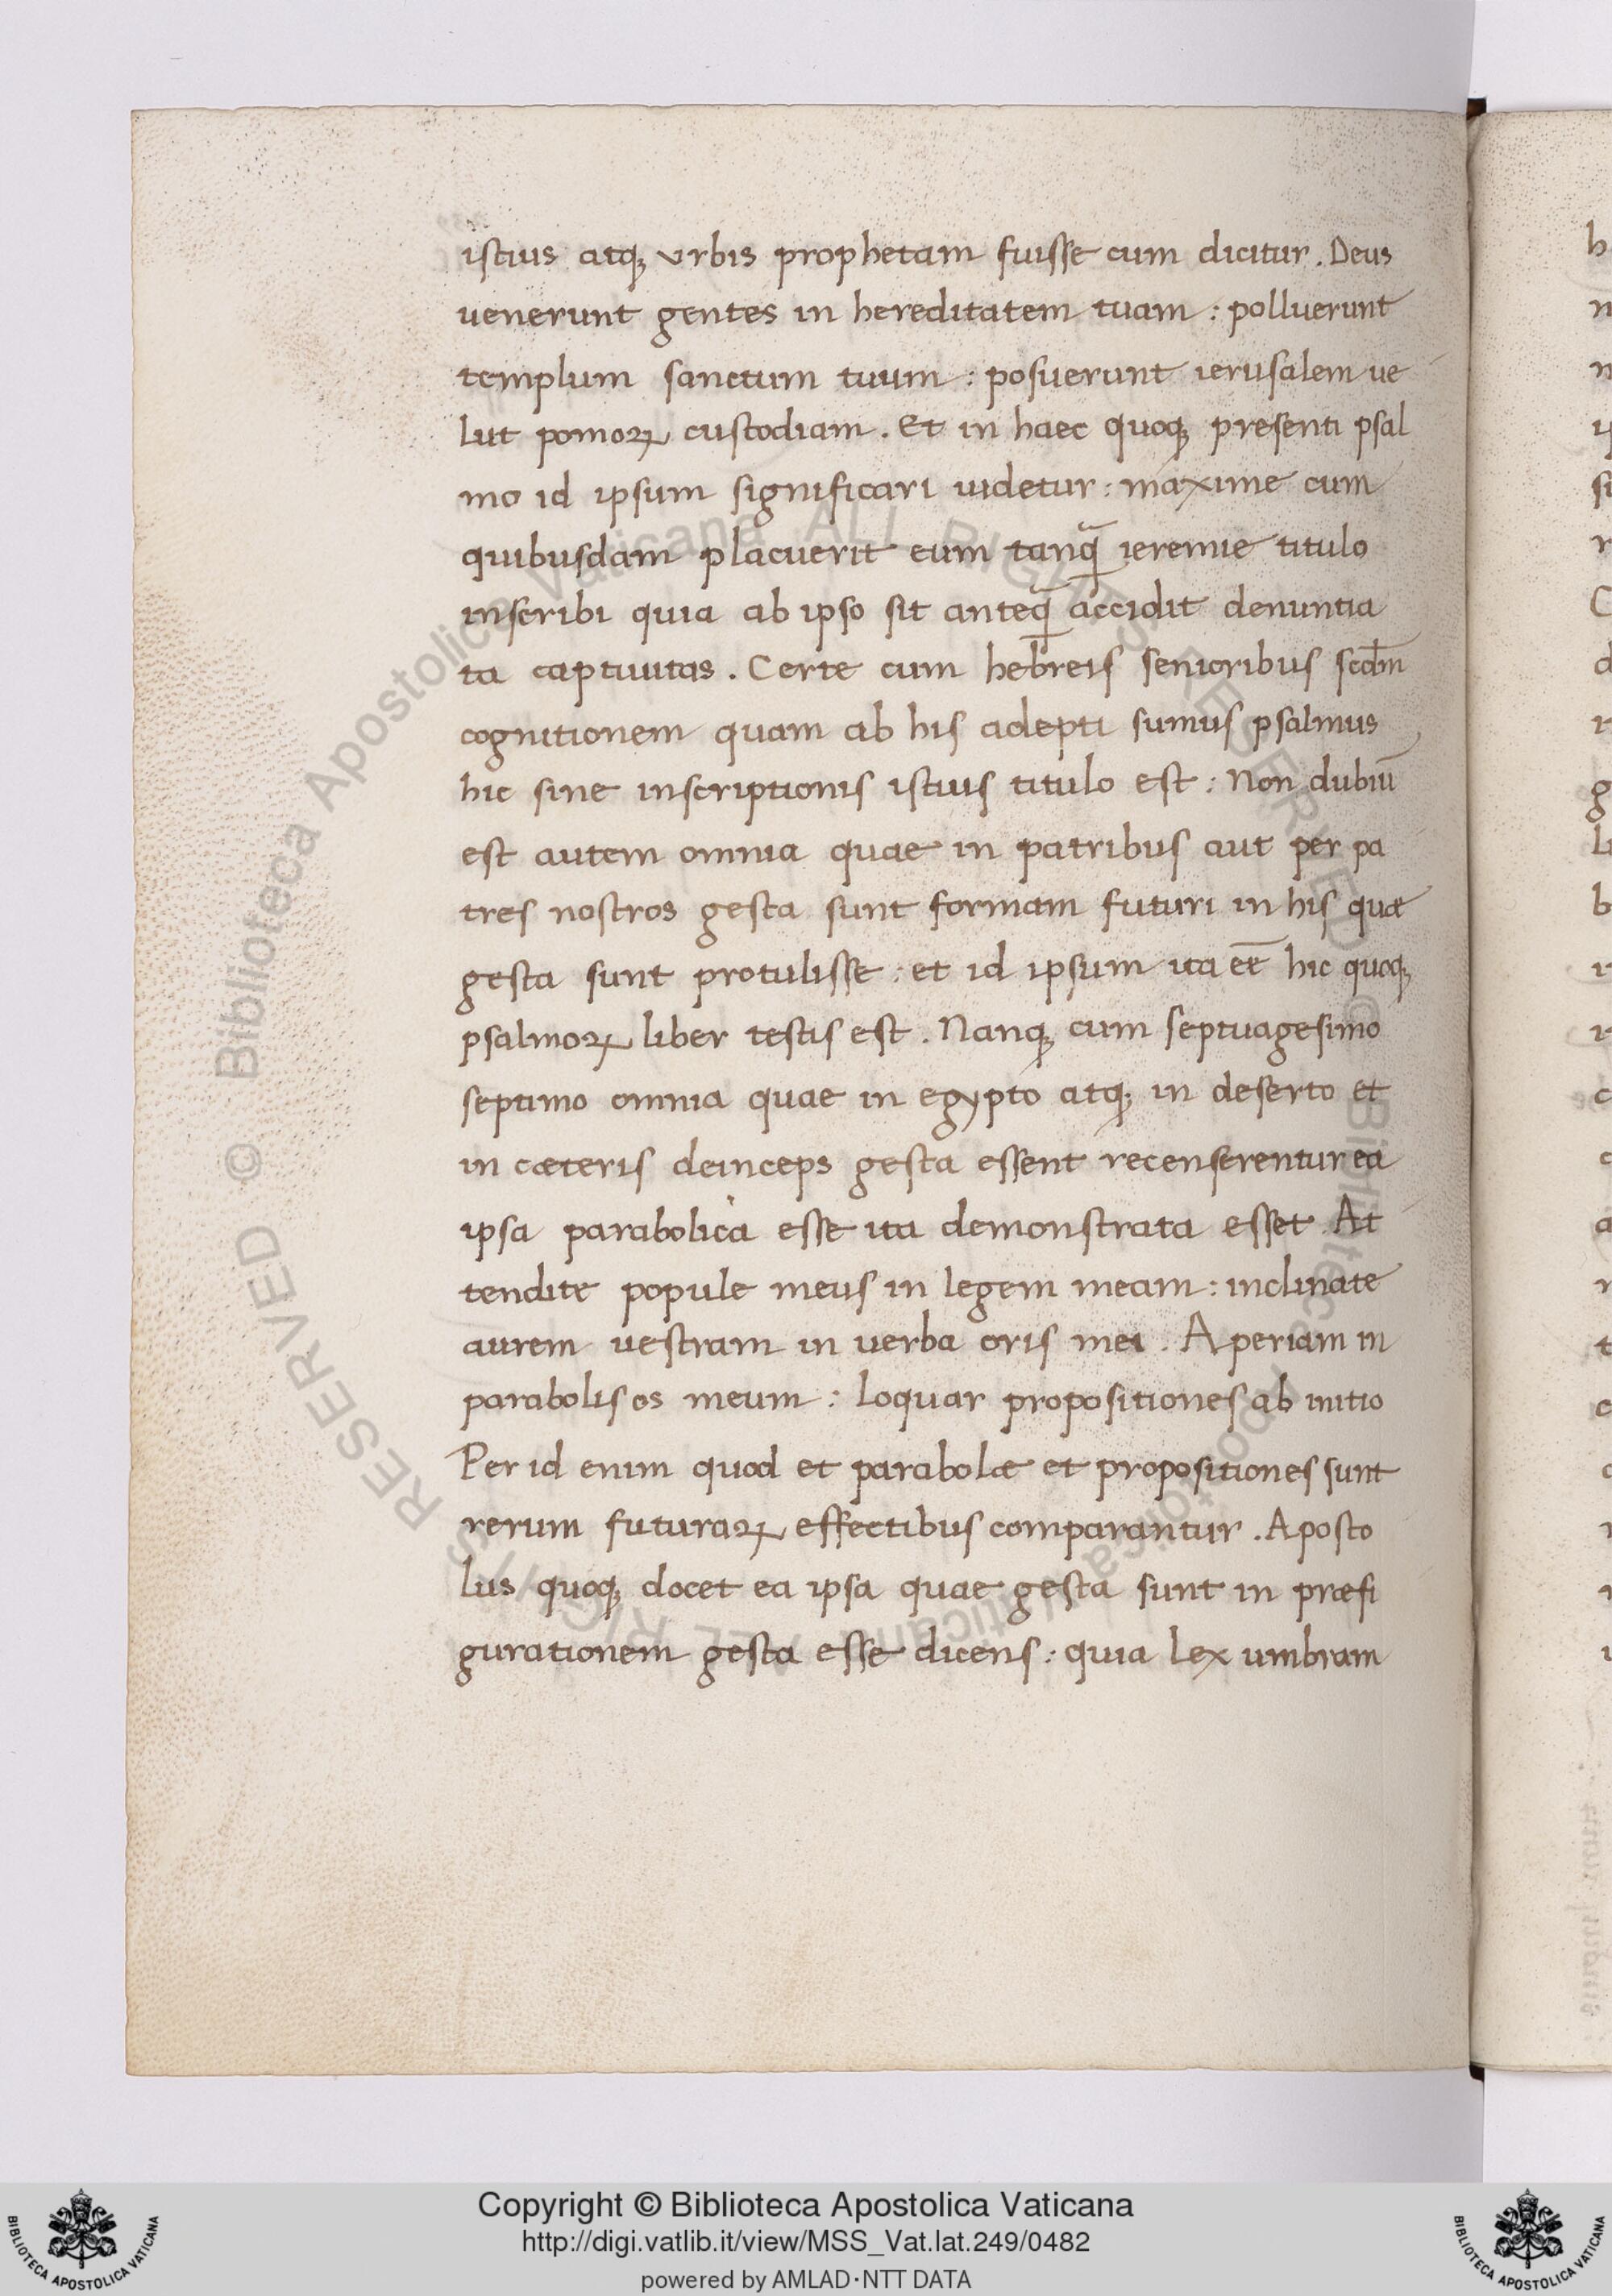 istius atq; vrbis prophetam fuisse cum dicitur. Deus
uenerunt gentes in hereditatem tuam: polluerunt
templum sanctum tuum: posuerunt ierusalem ue
lut pomoꝝ custodiam. Et in haec quoq; presenti psal
mo id ipsum significari uidetur: maxime cum
quibusdam placuerit eum tanꝙ̃ ieremie titulo
inscribi quia ab ipso sit anteꝙ̃ accidit denuntia
ta captiuitas. Certe cum hebreis senioribus scđm
cognitionem quam ab his adepti sumus psalmus
hic sine inscriptionis istius titulo est: Non dubiū
est autem omnia quae in patribus aut per pa
tres nostros gesta sunt formam futuri in his quæ
gesta sunt protulisse: et id ipsum ita eē hic quoq;
psalmoꝝ liber testis est. Nanq; cum septuagesimo
septimo omnia quae in egypto atq; in deserto et
in cæteris deinceps gesta essent recenserentur ea
ipsa parabolica esse ita demonstrata esset. At
tendite popule meus in legem meam: inclinate
aurem uestram in uerba oris mei. Aperiam in
parabolis os meum: loquar propositiones ab initio
Per id enim quod et parabolæ et propositiones sunt
rerum futuraꝝ effectibus comparantur. Aposto
lus quoq; docet ea ipsa quae gesta sunt in præfi
gurationem gesta esse dicens: quia lex umbram
© Biblioteca Apostolica Vaticana ALL RIGHTS RESERVED © Biblioteca Apostolica Vaticana ALL RIGHTS RESERVED
Copyright © Biblioteca Apostolica Vaticana
http://digi.vatlib.it/view/MSS_Vat.lat.249/0482
powered by AMLAD·NTT DATA
BIBLIOTECA APOSTOLICA VATICANA
BIBLIOTECA APOSTOLICA VATICANA